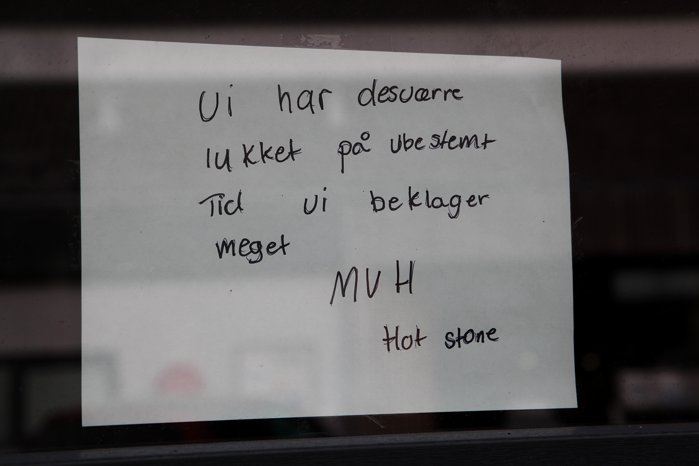 Vi har desværre
lukket på ubestemt
Tid vi beklager
meget
MVH
Hot stone